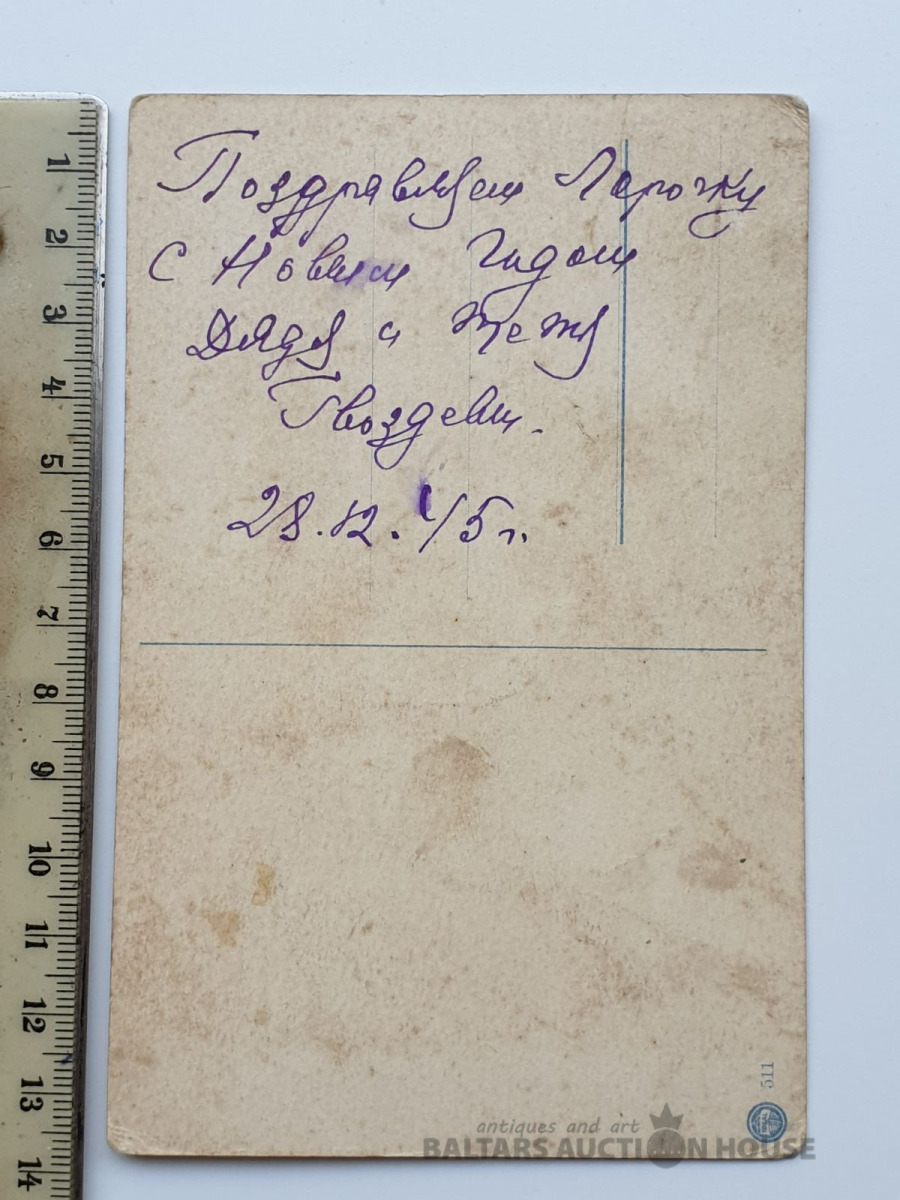 Поздравляем Лорочку
с Новым Годом
Дядя и тетя
Гвоздевы.
28.12.45г.
511
antiques and art
BALTARS AUCTION HOUSE
1
2
3
4
5
6
7
8
9
10
11
12
13
14